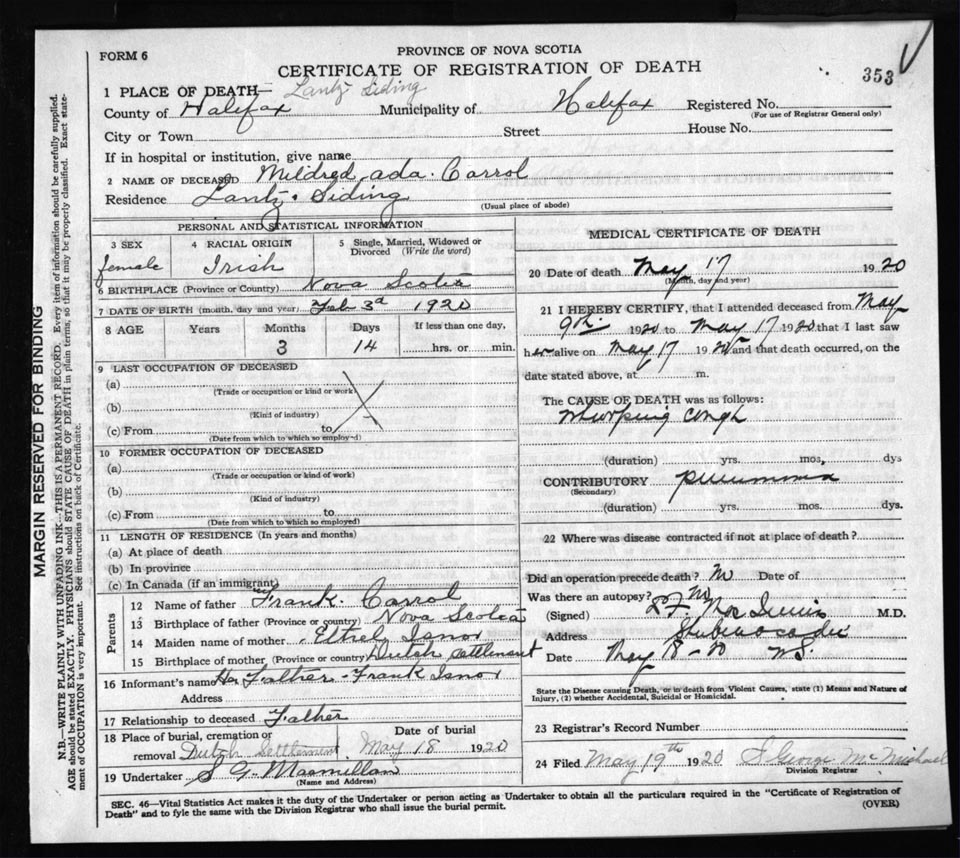 FORM 6
PROVINCE OF NOVA SCOTIA
CERTIFICATE OF REGISTRATION OF DEATH
353
1 PLACE OF DEATH— Lantz Siding
County of Halifax Municipality of Halifax Registered No.
(For use of Registrar General only)
City or Town Street House No.
If in hospital or institution, give name
2 NAME OF DECEASED Mildred Ada. Carrol
Residence Lantz. Siding
(Usual place of abode)
PERSONAL AND STATISTICAL INFORMATION
3 SEX 4 RACIAL ORIGIN 5 Single, Married, Widowed or Divorced (Write the word)
female Irish
6 BIRTHPLACE (Province or Country) Nova Scotia
7 DATE OF BIRTH (month, day and year) Feb 3d 1920
8 AGE Years Months Days If less than one day,
3 14 hrs. or min.
9 LAST OCCUPATION OF DECEASED
(a)
(Trade or occupation or kind or work)
(b)
(Kind of industry)
(c) From to
(Date from which to which so employed)
10 FORMER OCCUPATION OF DECEASED
(a)
(Trade or occupation or kind of work)
(b)
(Kind of industry)
(c) From to
(Date from which to which so employed)
11 LENGTH OF RESIDENCE (In years and months)
(a) At place of death
(b) In province
(c) In Canada (if an immigrant)
Parents
12 Name of father Frank. Carrol
13 Birthplace of father (Province or country) Nova Scotia
14 Maiden name of mother Ethel Isnor
15 Birthplace of mother (Province or country) Dutch settlement
16 Informant's name Her Father - Frank Isnor
Address
17 Relationship to deceased Father
18 Place of burial, cremation or Date of burial
removal Dutch Settlement May 18 1920
19 Undertaker S G Macmillan
(Name and Address)
MEDICAL CERTIFICATE OF DEATH
20 Date of death May 17 1920
(Month, day and year)
21 I HEREBY CERTIFY, that I attended deceased from May
9th 1920 to May 17 1920 that I last saw
her alive on May 17 1920 and that death occurred, on the
date stated above, at m.
The CAUSE OF DEATH was as follows:
Whooping cough
(duration) yrs. mos, dys
CONTRIBUTORY pneumonia
(Secondary)
(duration) yrs. mos. dys.
22 Where was disease contracted if not at place of death?
Did an operation precede death? no Date of
Was there an autopsy? no
(Signed) M.D.
Address Shubenacadie
Date May 18 - 20 NS.
State the Disease causing Death, or in death from Violent Causes, state (1) Means and Nature of
Injury, (2) whether Accidental, Suicidal or Homicidal.
23 Registrar's Record Number
24 Filed May 19th 1920 George McMichael
Division Registrar
SEC. 46—Vital Statistics Act makes it the duty of the Undertaker or person acting as Undertaker to obtain all the particulars required in the "Certificate of Registration of
Death" and to fyle the same with the Division Registrar who shall issue the burial permit.
(OVER)
MARGIN RESERVED FOR BINDING
N.B.—WRITE PLAINLY WITH UNFADING INK—THIS IS A PERMANENT RECORD. Every item of information should be carefully supplied.
AGE should be stated EXACTLY. PHYSICIANS should STATE CAUSE OF DEATH in plain terms, so that it may be properly classified. Exact state-
ment of OCCUPATION is very important. See instructions on back of Certificate.